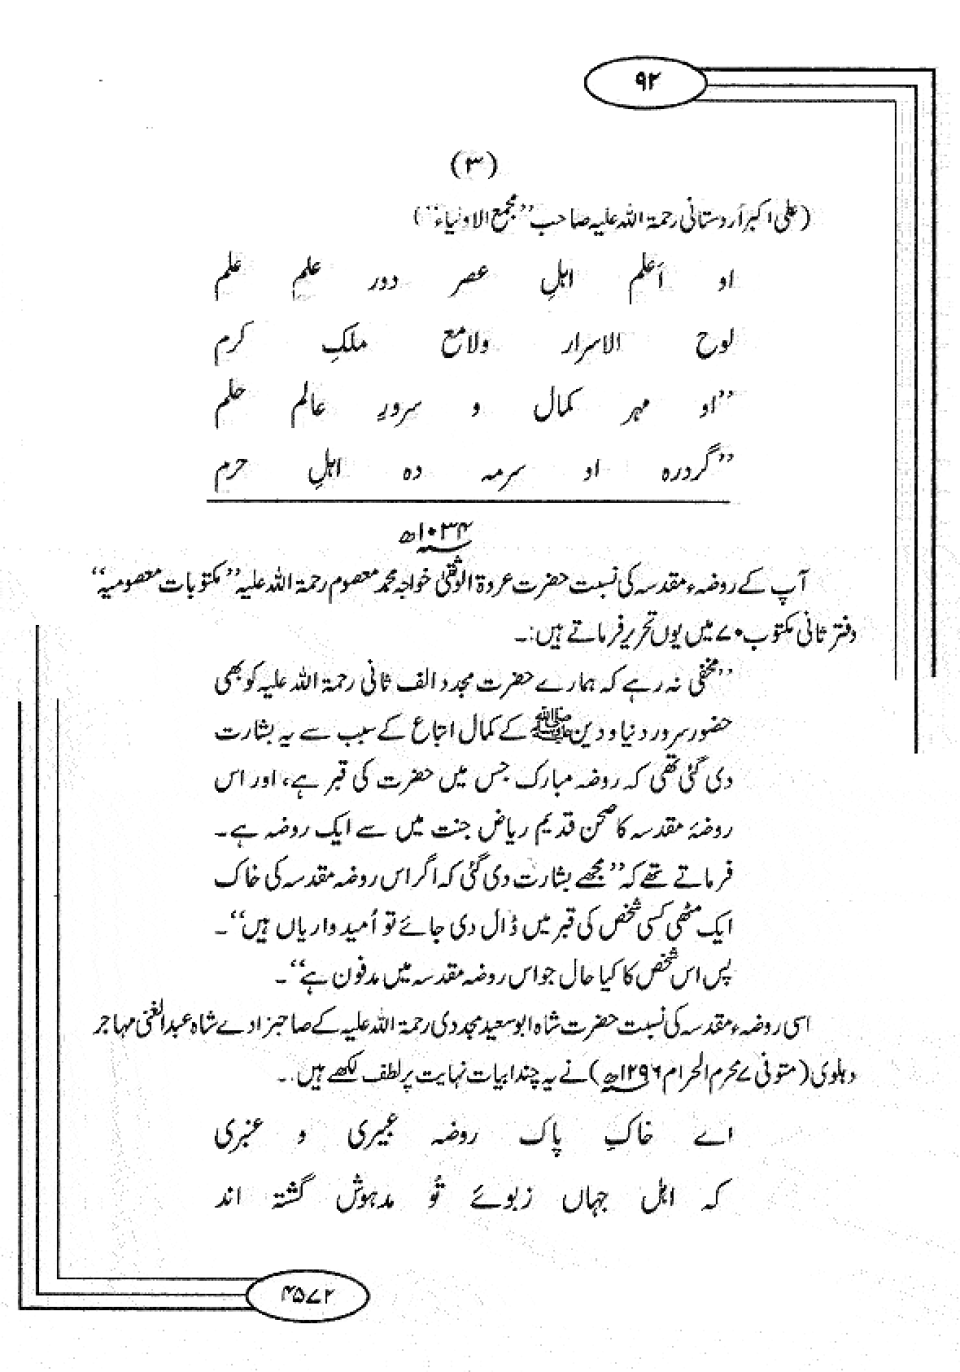 ۹۲
(۳)
(علی اکبر اَردستانی رحمۃ اللہ علیہ صاحب ’’مجمع الاولیاء‘‘)
او اَعلم اہلِ عصر دور علمِ علم
لوح الاسرار ولامع ملکِ کرم
’’او مہر کمال و سرورِ عالم حلم
’’گردرہ او سرمہ دہ اہلِ حرم
۱۰۳۴ھ
آپ کے روضہء مقدسہ کی نسبت حضرت عروۃ الوثقیٰ خواجہ محمد معصوم رحمۃ اللہ علیہ ’’مکتوبات معصومیہ‘‘
دفتر ثانی مکتوب ۷۰ میں یوں تحریر فرماتے ہیں:۔
’’مخفی نہ رہے کہ ہمارے حضرت مجدد الف ثانی رحمۃ اللہ علیہ کو بھی
حضور سرور دنیا و دین ﷺ کے کمال اتباع کے سبب سے یہ بشارت
دی گئی تھی کہ روضہ مبارک جس میں حضرت کی قبر ہے، اور اس
روضۂ مقدسہ کا صحن قدیم ریاض جنت میں سے ایک روضہ ہے۔
فرماتے تھے کہ ’’مجھے بشارت دی گئی کہ اگر اس روضہ مقدسہ کی خاک
ایک مٹھی کسی شخص کی قبر میں ڈال دی جائے تو اُمیدواریاں ہیں‘‘۔
پس اس شخص کا کیا حال جو اس روضہ مقدسہ میں مدفون ہے‘‘۔
اسی روضہء مقدسہ کی نسبت حضرت شاہ ابوسعید مجددی رحمۃ اللہ علیہ کے صاحبزادے شاہ عبدالغنی مہاجر
دہلوی (متوفی ۷ محرم الحرام ۱۲۹۶ھ) نے یہ چند ابیات نہایت پر لطف لکھے ہیں:۔
اے خاکِ پاک روضہ عبیری و عنبری
کہ اہل جہاں زبوئے تُو مدہوش گشتہ اند
۴۵۷۲